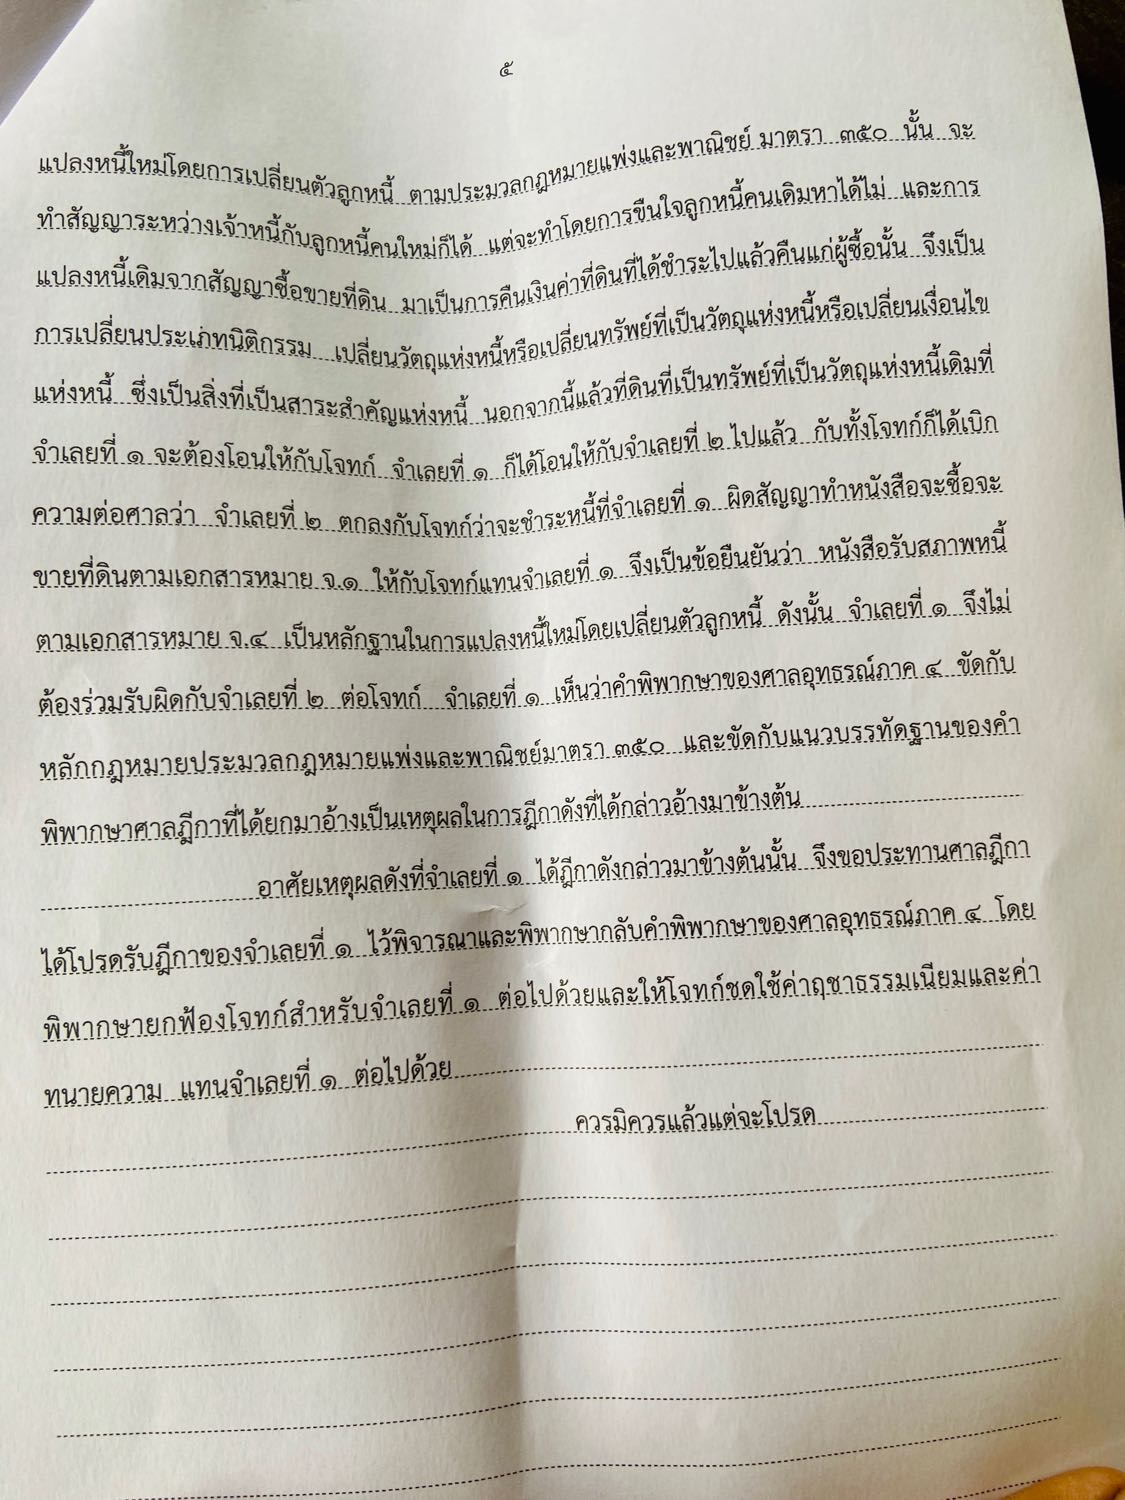 ๕
แปลงหนี้ใหม่โดยการเปลี่ยนตัวลูกหนี้ ตามประมวลกฎหมายแพ่งและพาณิชย์ มาตรา ๓๕๐ นั้น จะ
ทำสัญญาระหว่างเจ้าหนี้กับลูกหนี้คนใหม่ก็ได้ แต่จะทำโดยการขืนใจลูกหนี้คนเดิมหาได้ไม่ และการ
แปลงหนี้เดิมจากสัญญาซื้อขายที่ดิน มาเป็นการคืนเงินค่าที่ดินที่ได้ชำระไปแล้วคืนแก่ผู้ซื้อนั้น จึงเป็น
การเปลี่ยนประเภทนิติกรรม เปลี่ยนวัตถุแห่งหนี้หรือเปลี่ยนทรัพย์ที่เป็นวัตถุแห่งหนี้หรือเปลี่ยนเงื่อนไข
แห่งหนี้ ซึ่งเป็นสิ่งที่เป็นสาระสำคัญแห่งหนี้ นอกจากนี้แล้วที่ดินที่เป็นทรัพย์ที่เป็นวัตถุแห่งหนี้เดิมที่
จำเลยที่ ๑ จะต้องโอนให้กับโจทก์ จำเลยที่ ๑ ก็ได้โอนให้กับจำเลยที่ ๒ ไปแล้ว กับทั้งโจทก์ก็ได้เบิก
ความต่อศาลว่า จำเลยที่ ๒ ตกลงกับโจทก์ว่าจะชำระหนี้ที่จำเลยที่ ๑ ผิดสัญญาทำหนังสือจะซื้อจะ
ขายที่ดินตามเอกสารหมาย จ.๑ ให้กับโจทก์แทนจำเลยที่ ๑ จึงเป็นข้อยืนยันว่า หนังสือรับสภาพหนี้
ตามเอกสารหมาย จ.๔ เป็นหลักฐานในการแปลงหนี้ใหม่โดยเปลี่ยนตัวลูกหนี้ ดังนั้น จำเลยที่ ๑ จึงไม่
ต้องร่วมรับผิดกับจำเลยที่ ๒ ต่อโจทก์ จำเลยที่ ๑ เห็นว่าคำพิพากษาของศาลอุทธรณ์ภาค ๔ ขัดกับ
หลักกฎหมายประมวลกฎหมายแพ่งและพาณิชย์มาตรา ๓๕๐ และขัดกับแนวบรรทัดฐานของคำ
พิพากษาศาลฎีกาที่ได้ยกมาอ้างเป็นเหตุผลในการฎีกาดังที่ได้กล่าวอ้างมาข้างต้น
อาศัยเหตุผลดังที่จำเลยที่ ๑ ได้ฎีกาดังกล่าวมาข้างต้นนั้น จึงขอประทานศาลฎีกา
ได้โปรดรับฎีกาของจำเลยที่ ๑ ไว้พิจารณาและพิพากษากลับคำพิพากษาของศาลอุทธรณ์ภาค ๔ โดย
พิพากษายกฟ้องโจทก์สำหรับจำเลยที่ ๑ ต่อไปด้วยและให้โจทก์ชดใช้ค่าฤชาธรรมเนียมและค่า
ทนายความ แทนจำเลยที่ ๑ ต่อไปด้วย
ควรมิควรแล้วแต่จะโปรด